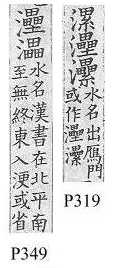 漯灅㶟
水名出鴈門
或作灅
P319
灅
水名漢書在北平南
至無終東入浭或省
P349